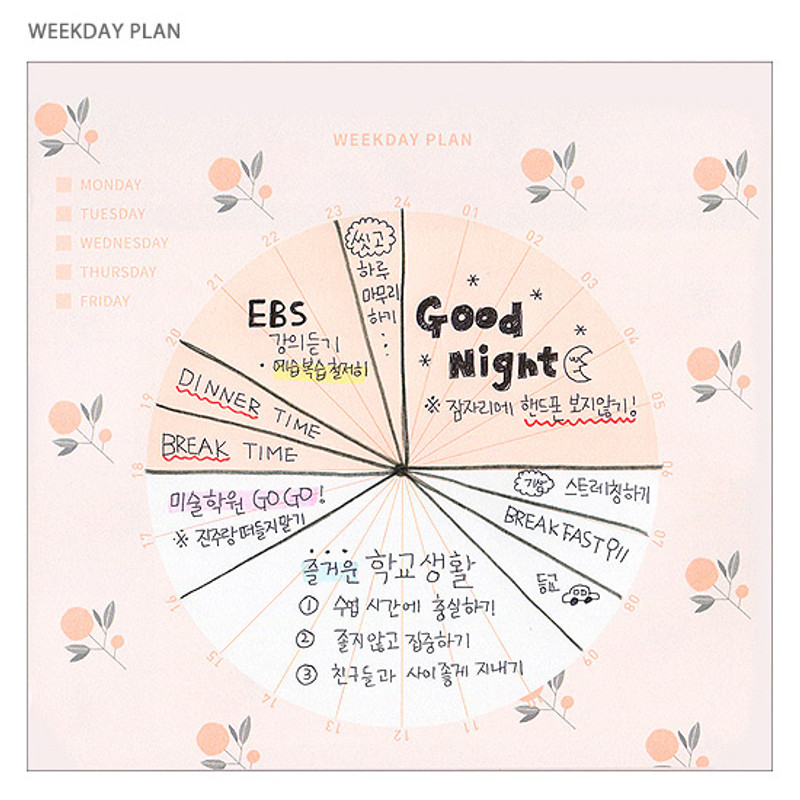 WEEKDAY PLAN
WEEKDAY PLAN
MONDAY
TUESDAY
WEDNESDAY
THURSDAY
FRIDAY
24
01
02
03
04
05
06
07
08
09
10
11
12
13
14
15
16
17
18
19
20
21
22
23
씻고
하루
마무리
하기
Good
Night
※ 잠자리에 핸드폰 보지않기!
EBS
강의듣기
· 예습복습철저히
DINNER TIME
BREAK TIME
미술학원 GOGO!
※ 진주랑떠들지말기
기상 스트레칭하기
BREAKFAST
등교
즐거운 학교생활
① 수업 시간에 충실하기
② 졸지않고 집중하기
③ 친구들과 사이좋게 지내기